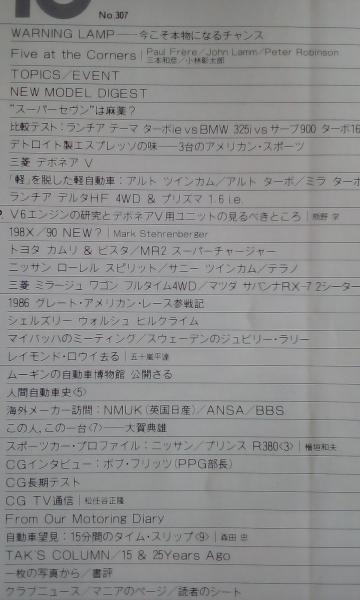 No.307
WARNING LAMP——今こそ本物になるチャンス
Five at the Corners | Paul Frère/John Lamm/Peter Robinson
三本和彦/小林彰太郎
TOPICS/EVENT
NEW MODEL DIGEST
"スーパーセヴン"は麻薬?
比較テスト:ランチア テーマ ターボie vs BMW 325i vs サーブ900 ターボ16
デトロイト製エスプレッソの味——3台のアメリカン・スポーツ
三菱 デボネア V
「軽」を脱した軽自動車:アルト ツインカム/アルト ターボ/ミラ ターボ
ランチア デルタHF 4WD & プリズマ 1.6 i.e.
V6エンジンの研究とデボネアV用ユニットの見るべきところ | 熊野 学
198X/'90 NEW? | Mark Stehrenberger
トヨタ カムリ & ビスタ/MR2 スーパーチャージャー
ニッサン ローレル スピリット/サニー ツインカム/テラノ
三菱 ミラージュ ワゴン フルタイム4WD/マツダ サバンナRX-7 2シーター
1986 グレート・アメリカン・レース参戦記
シェルズリー ウォルシュ ヒルクライム
マイバッハのミーティング/スウェーデンのジュビリー・ラリー
レイモンド・ロウイ去る | 五十嵐平達
ムーギンの自動車博物館 公開さる
人間自動車史〈5〉
海外メーカー訪問:NMUK(英国日産)/ANSA/BBS
この人、この一台〈7〉——大賀典雄
スポーツカー・プロファイル:ニッサン/プリンス R380〈3〉 | 檜垣和夫
CGインタビュー:ボブ・フリッツ(PPG部長)
CG長期テスト
CG TV通信 | 松任谷正隆
From Our Motoring Diary
自動車望見:15分間のタイム・スリップ〈9〉 | 森田 忠
TAK'S COLUMN/15 & 25Years Ago
一枚の写真から/書評
クラブニュース/マニアのページ/読者のシート